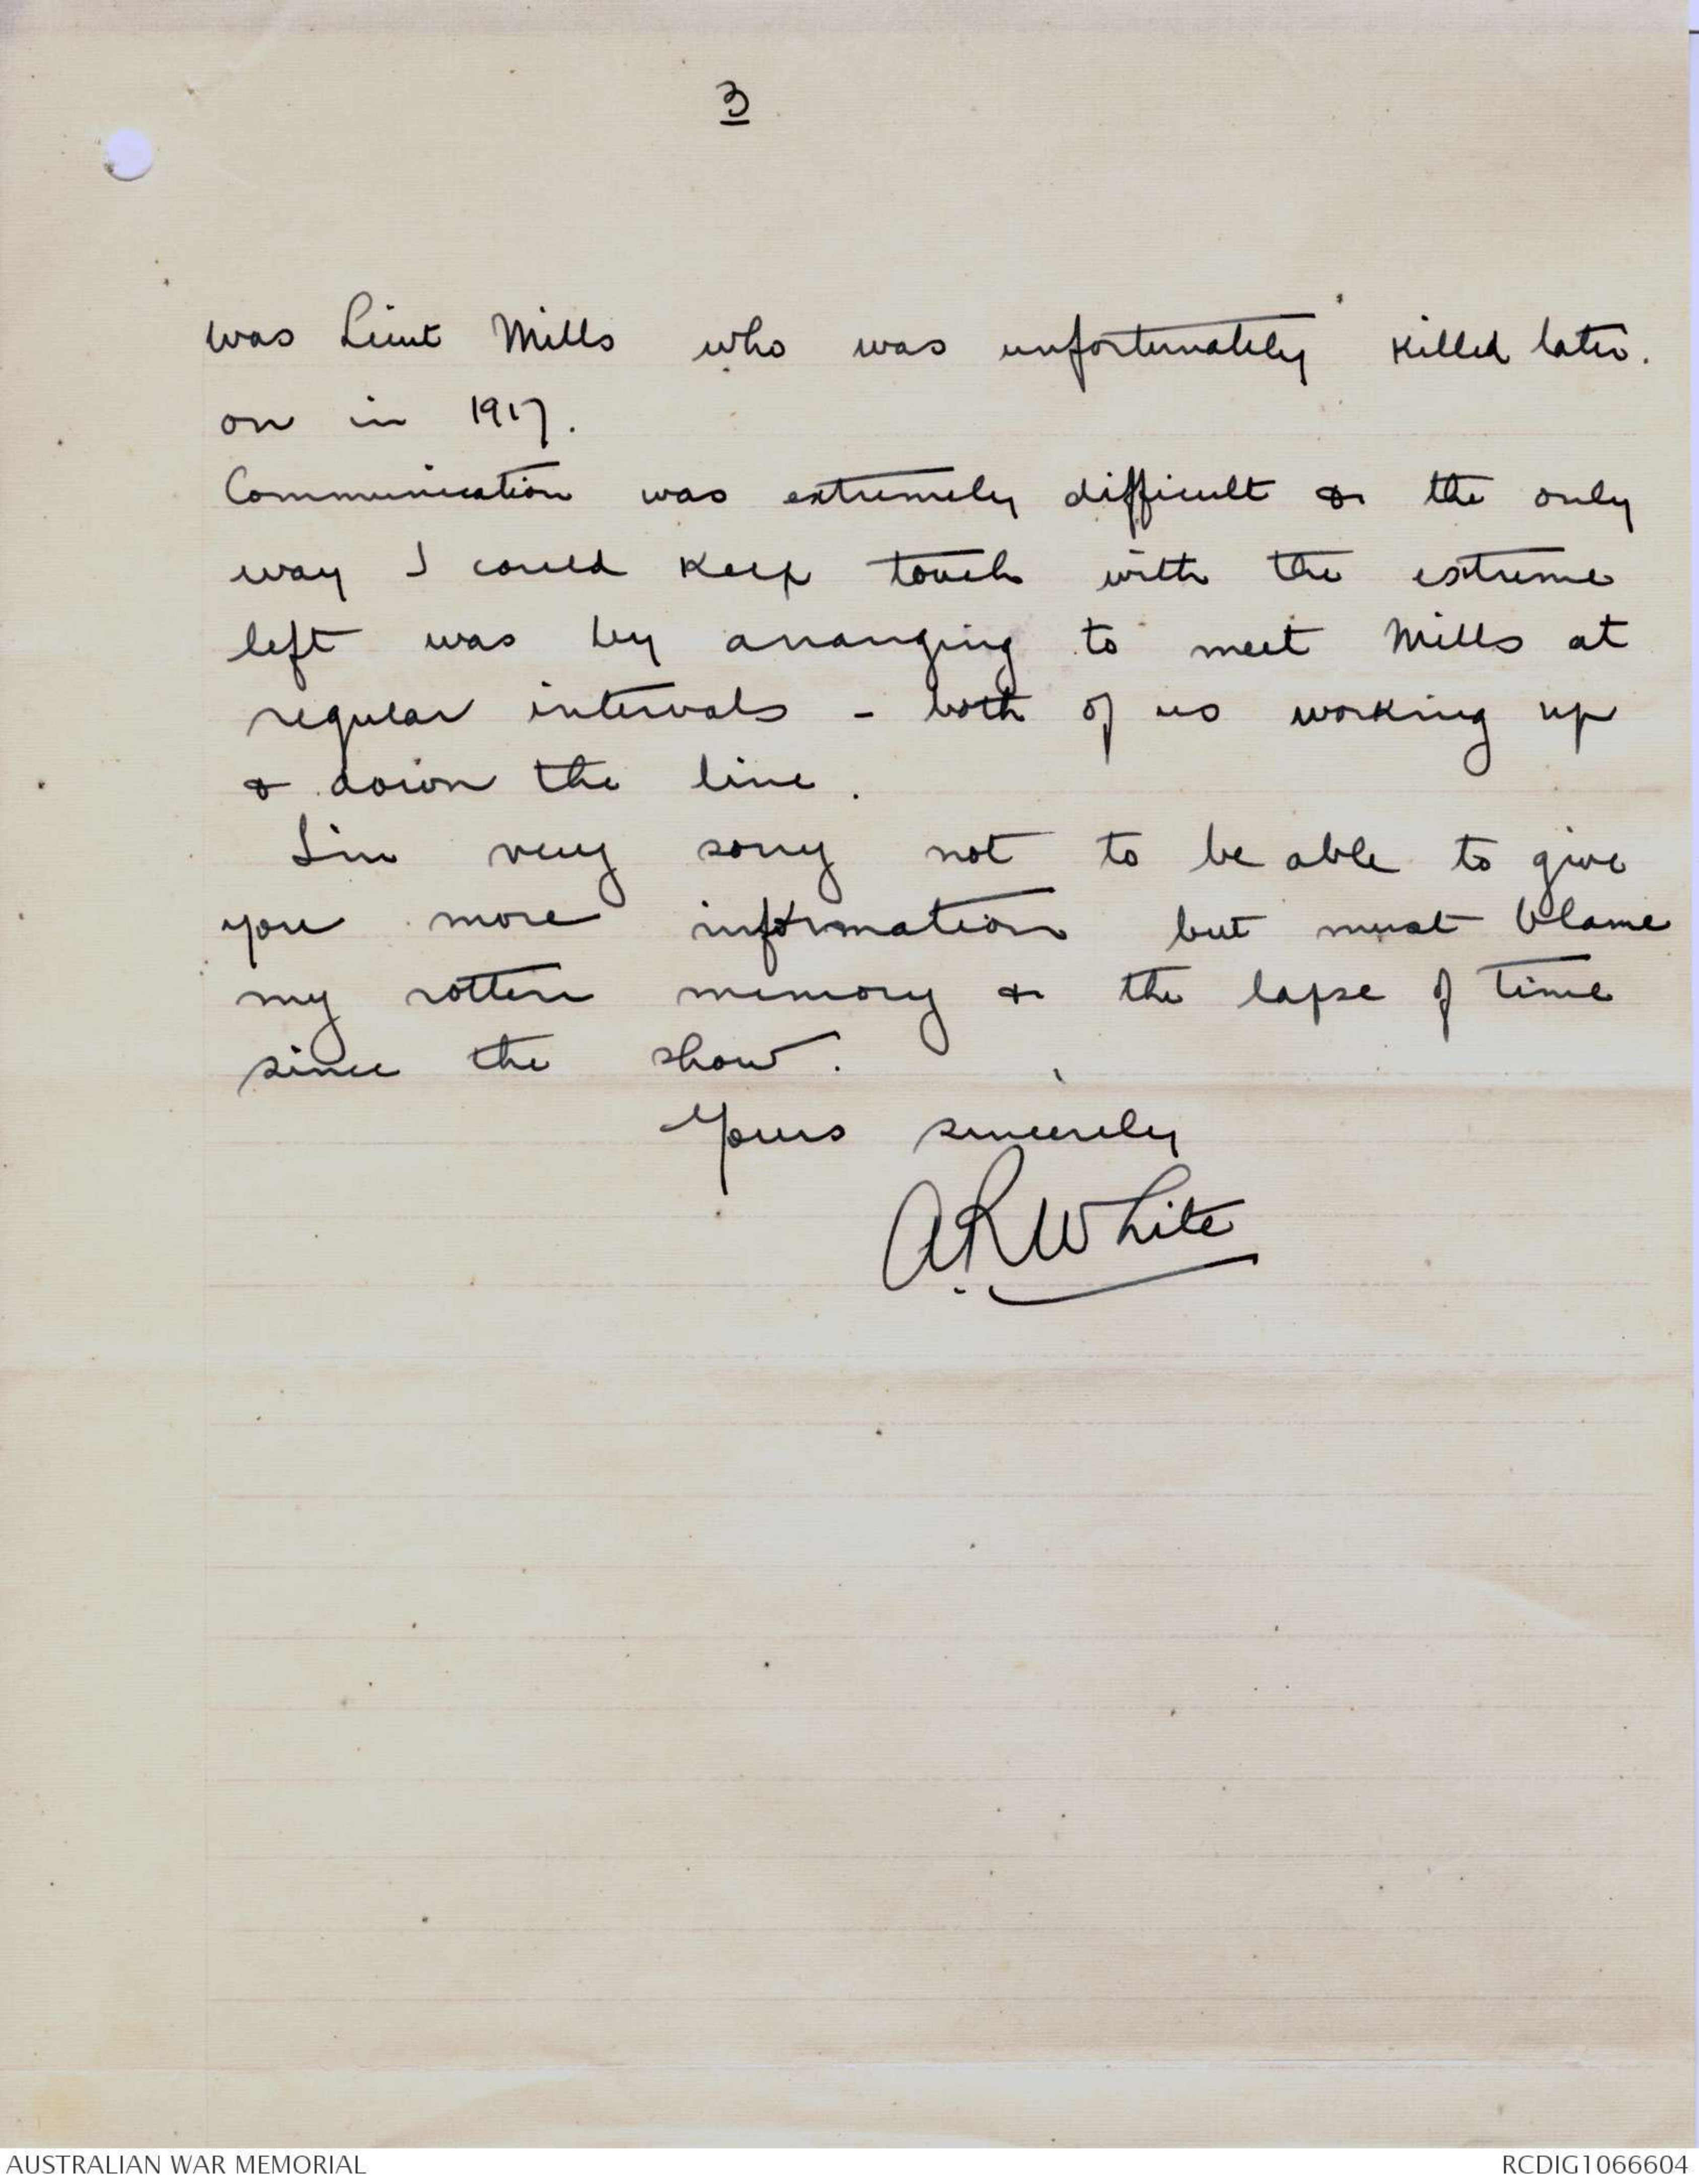 3
was Lieut Mills who was unfortunately killed later.
on in 1917.
Communication was extremely difficult & the only
way I could keep touch with the extreme
left was by arranging to meet Mills at
regular intervals - both of us working up
& down the line.
I'm very sorry not to be able to give
you more information but must blame
my rotten memory & the lapse of time
since the show.
Yours sincerely
A.R White
AUSTRALIAN WAR MEMORIAL
RCDIG1066604